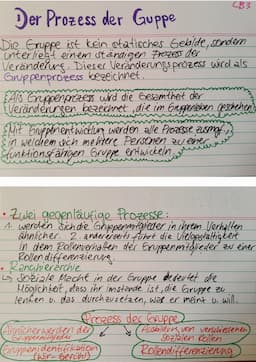 LB3
Der Prozess der Guppe
Die Gruppe ist kein statisches Gebilde, sondern
unterliegt einem ständigen Prozess der
Veränderung. Dieser Veränderungsprozess wird als
Gruppenprozess bezeichnet.
Als Gruppenprozess wird die Gesamtheit der
Veränderungen bezeichnet, die im Gruppenleben geschehen
Mit Gruppenentwicklung werden alle Prozesse
in welchem sich mehrere Personen zu einer
funktionsfähigen Gruppe entwickeln
• Zwei gegenläufige Prozesse:
1. werden sich die Gruppenmitglieder in ihrem Verhalten
ähnlicher 2. andererseits führt die Vielgestaltigkeit
in dem Rollenverhalten der Gruppenmitglieder zu einer
Rollendifferenzierung.
•
↳ Soziale Macht in der Gruppe bedeutet die
Möglichkeit, dass ihr imstande ist, die Gruppe zu
lenken u. das durchzusetzen, was er meint u. will.
Prozess der Gruppe
Ähnlicherwerden der Gruppenmitglieder
Etablieren von verschiedenen sozialen Rollen
Gruppenidentifikation
Rollendifferenzierung